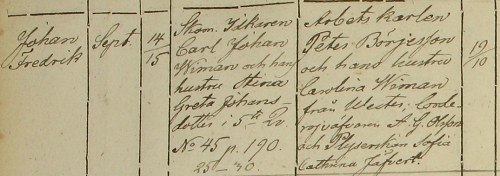 Johan
Fredrik
Sept.
14
15
Skom. Idkaren
Carl Johan
Wiman och hans
hustru Stina
Greta Johans-
dotter i 5te Qv.
No 45 p. 190.
25-30.
Arbetskarlen
Peter Börjesson
och hans hustru
Carolina Wiman
från Wester,
F. G. Olsson
och Sofia
Cathrina
19
10